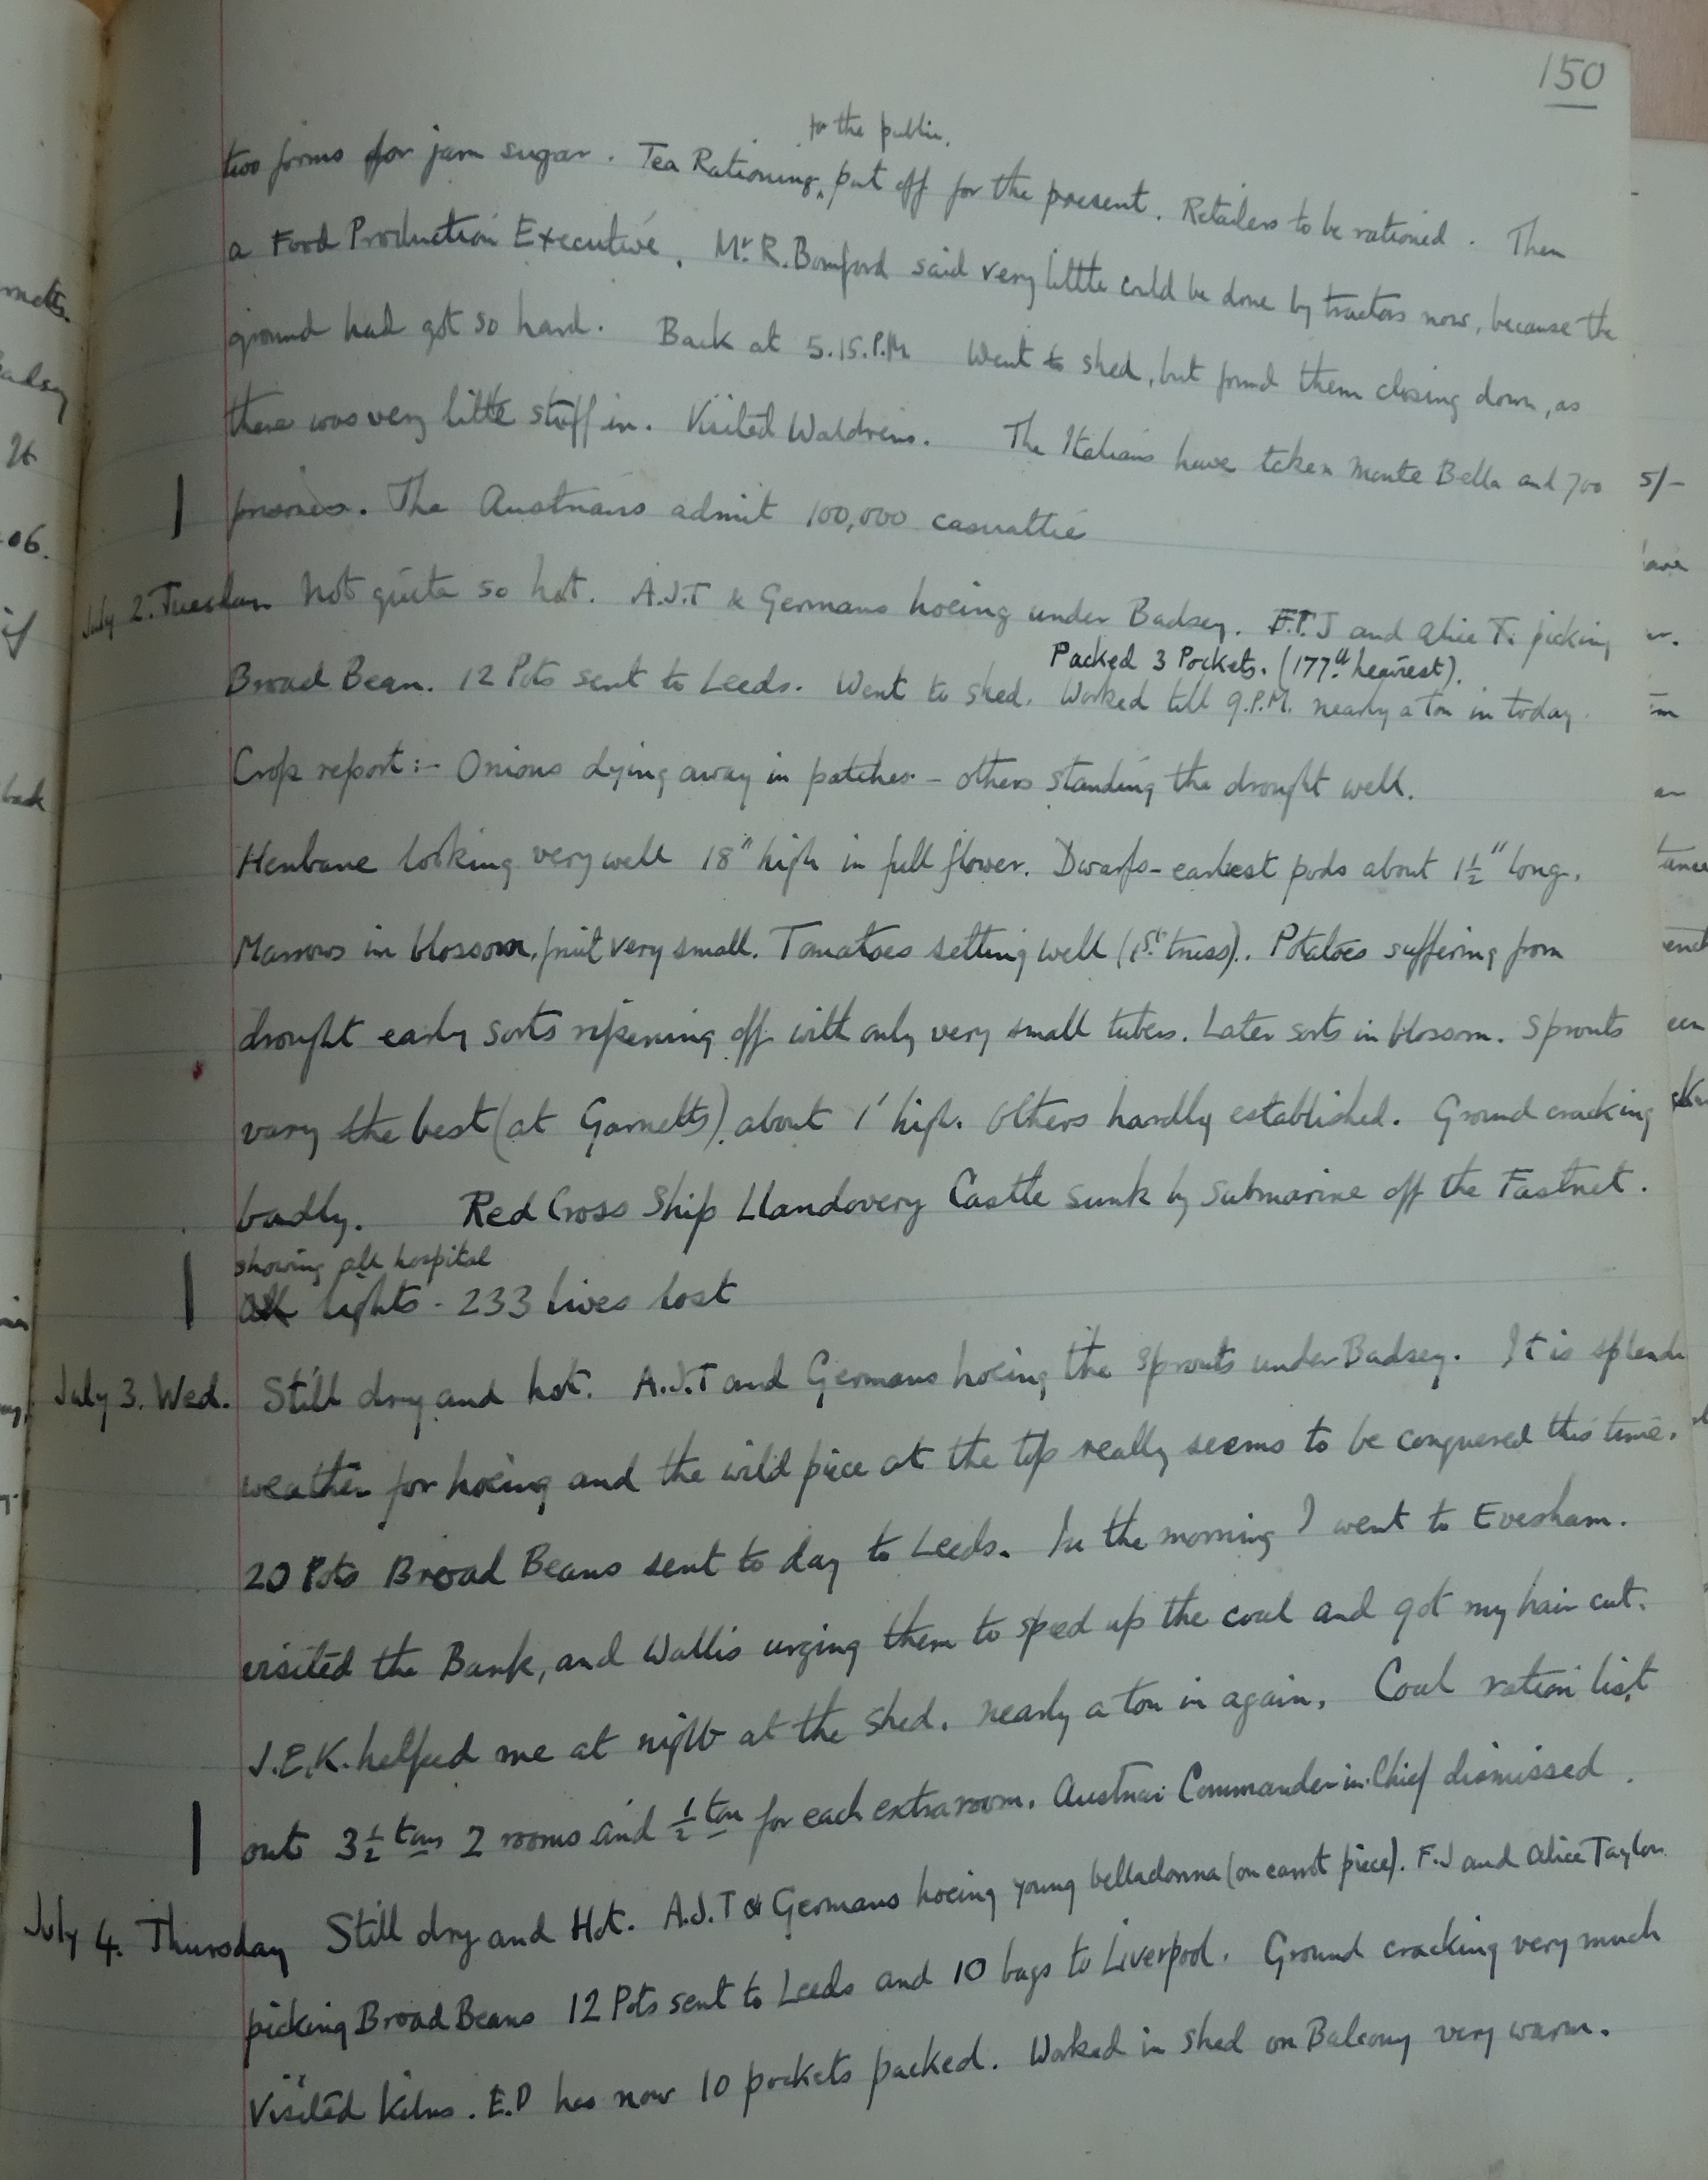 150
to the public.
two forms for jam sugar. Tea Rationing put off for the present. Retailers to be rationed. Then
a Food Production Executive. Mr. R. Bomford said very little could be done by tractors now, because the
ground had got so hard. Back at 5.15. P.M. Went to shed, but found them closing down, as
there was very little stuff in. Visited Waldrens. The Italians have taken Monte Bella and 700
prisoners. The Austrians admit 100,000 casualties
July 2. Tuesday Not quite so hot. A.J.T & Germans hoeing under Badsey. F.J and Alice T. picking
Packed 3 Pockets. (177th heaviest).
Broad Bean. 12 Pots sent to Leeds. Went to shed. Worked till 9.P.M. nearly a ton in today.
Crop report:- Onions dying away in patches - others standing the drought well.
Henbane looking very well 18" high in full flower. Dwarfs - earliest pods about 1½" long.
Marrows in blossom, fruit very small. Tomatoes setting well (1st truss). Potatoes suffering from
drought early sorts ripening off with only very small tubers. Later sorts in blossom. Sprouts
vary the best (at Garnetts) about 1' high. Others hardly established. Ground cracking
badly. Red Cross Ship Llandovery Castle sunk by Submarine off the Fastnet.
showing all hospital
all lights - 233 lives lost
July 3. Wed. Still dry and hot. A.J.T and Germans hoeing the sprouts under Badsey. It is splendi
weather for hoeing and the wild piece at the top really seems to be conquered this time.
20 Pots Broad Beans sent to day to Leeds. In the morning I went to Evesham.
visited the Bank, and Wallis urging them to speed up the coal and got my hair cut.
J.E.K. helped me at night at the shed. nearly a ton in again. Coal ration list
out 3½ tons 2 rooms and ½ ton for each extra room. Austrian Commander in Chief dismissed.
July 4. Thursday Still dry and Hot. A.J.T & Germans hoeing young belladonna (on carrot piece). F.J and Alice Taylor
picking Broad Beans 12 Pots sent to Leeds and 10 bags to Liverpool. Ground cracking very much
Visited Kilns. E.D has now 10 pockets packed. Worked in shed on Balcony very warm.